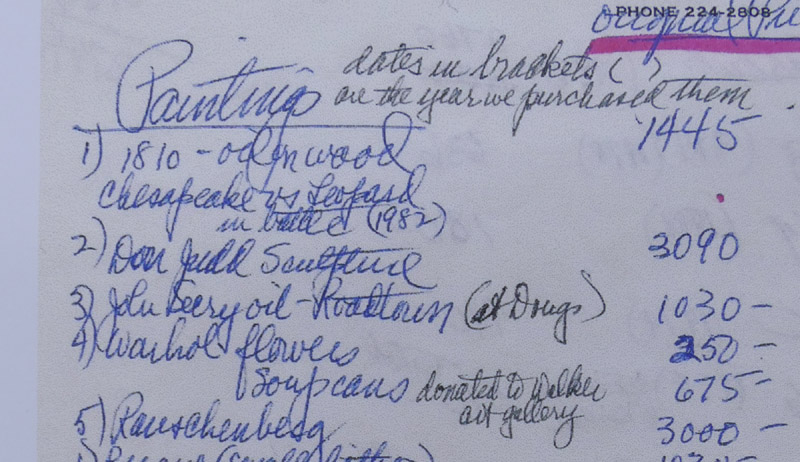 PHONE 224-2808
Original
Paintings dates in brackets ( )
are the year we purchased them.
1) 1810 - oil on wood 1445
Chesapeake vs Leopard
in battle (1982)
2) Don Judd Sculpture 3090
3) John Beery oil - Roadtown (at Dougs) 1030 -
4) Warhol flowers 250 -
Soup cans donated to Walker 675 -
art gallery
5) Rauschenberg 3000 -